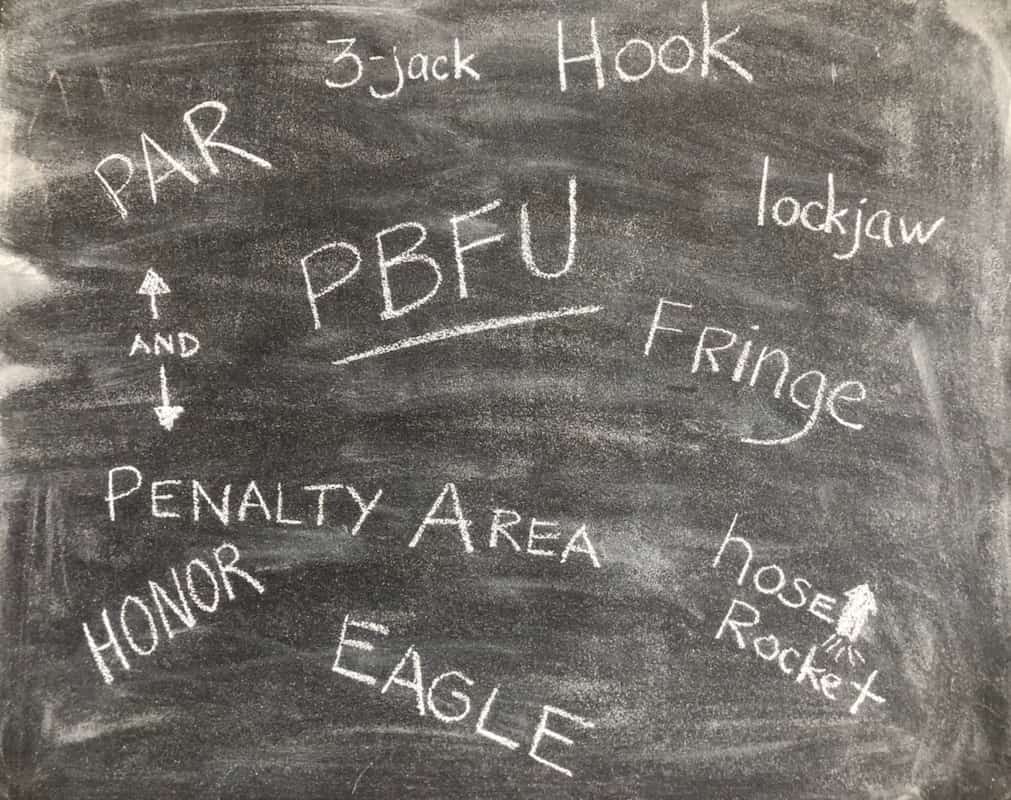 3-jack
Hook
PAR
lockjaw
PBFU
AND
Fringe
PENALTY AREA
hose
Rocket
HONOR
EAGLE